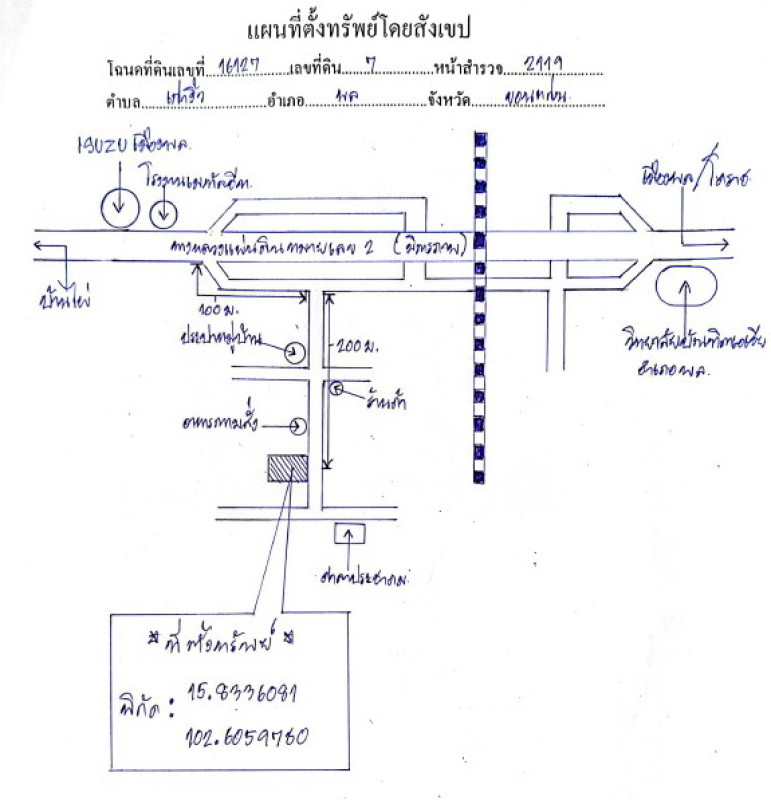 แผนที่ตั้งทรัพย์โดยสังเขป
โฉนดที่ดินเลขที่ 16127 เลขที่ดิน 7 หน้าสำรวจ 2119
ตำบล เก่างิ้ว อำเภอ พล จังหวัด ขอนแก่น
ISUZU เมืองพล
โรงงานเมทัลชีท
เมืองพล/โคราช
ทางหลวงแผ่นดินหมายเลข 2 (มิตรภาพ)
บ้านไผ่
100 ม.
ประปาหมู่บ้าน
200 ม.
วิทยาลัยบัณฑิตเอเซีย
อำเภอพล
ร้านค้า
อาหารตามสั่ง
ศาลาประชาคม
* ที่ตั้งทรัพย์ *
พิกัด : 15.8336081
102.6059760